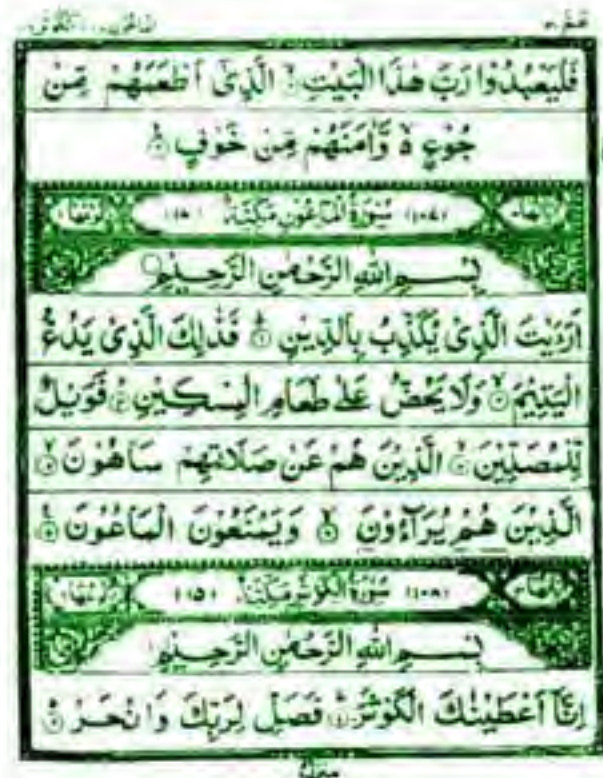 عم ٣٠ الماعون ١٠٧ الكوثر ١٠٨
فَلْيَعْبُدُوْا رَبَّ هٰذَا الْبَيْتِ ۙ الَّذِیْۤ اَطْعَمَهُمْ مِّنْ
جُوْعٍ ۙ۬ وَّاٰمَنَهُمْ مِّنْ خَوْفٍ ۠
اٰیاتها ٧ (١٠٧) سُوْرَةُ الْمَاعُوْنِ مَكِّيَّةٌ (١٧) رکوعها ١
بِسْمِ اللّٰهِ الرَّحْمٰنِ الرَّحِيْمِ
اَرَءَيْتَ الَّذِیْ يُكَذِّبُ بِالدِّيْنِ ؕ فَذٰلِكَ الَّذِیْ يَدُعُّ
الْيَتِيْمَ ۙ وَلَا يَحُضُّ عَلٰی طَعَامِ الْمِسْكِيْنِ ؕ فَوَيْلٌ
لِّلْمُصَلِّيْنَ ۙ الَّذِيْنَ هُمْ عَنْ صَلَاتِهِمْ سَاهُوْنَ ۙ
الَّذِيْنَ هُمْ يُرَآءُوْنَ ۙ وَيَمْنَعُوْنَ الْمَاعُوْنَ ۠
(١٠٨) سُوْرَةُ الْكَوْثَرِ مَكِّيَّةٌ (١٥)
بِسْمِ اللّٰهِ الرَّحْمٰنِ الرَّحِيْمِ
اِنَّاۤ اَعْطَيْنٰكَ الْكَوْثَرَ ؕ فَصَلِّ لِرَبِّكَ وَانْحَرْ ؕ